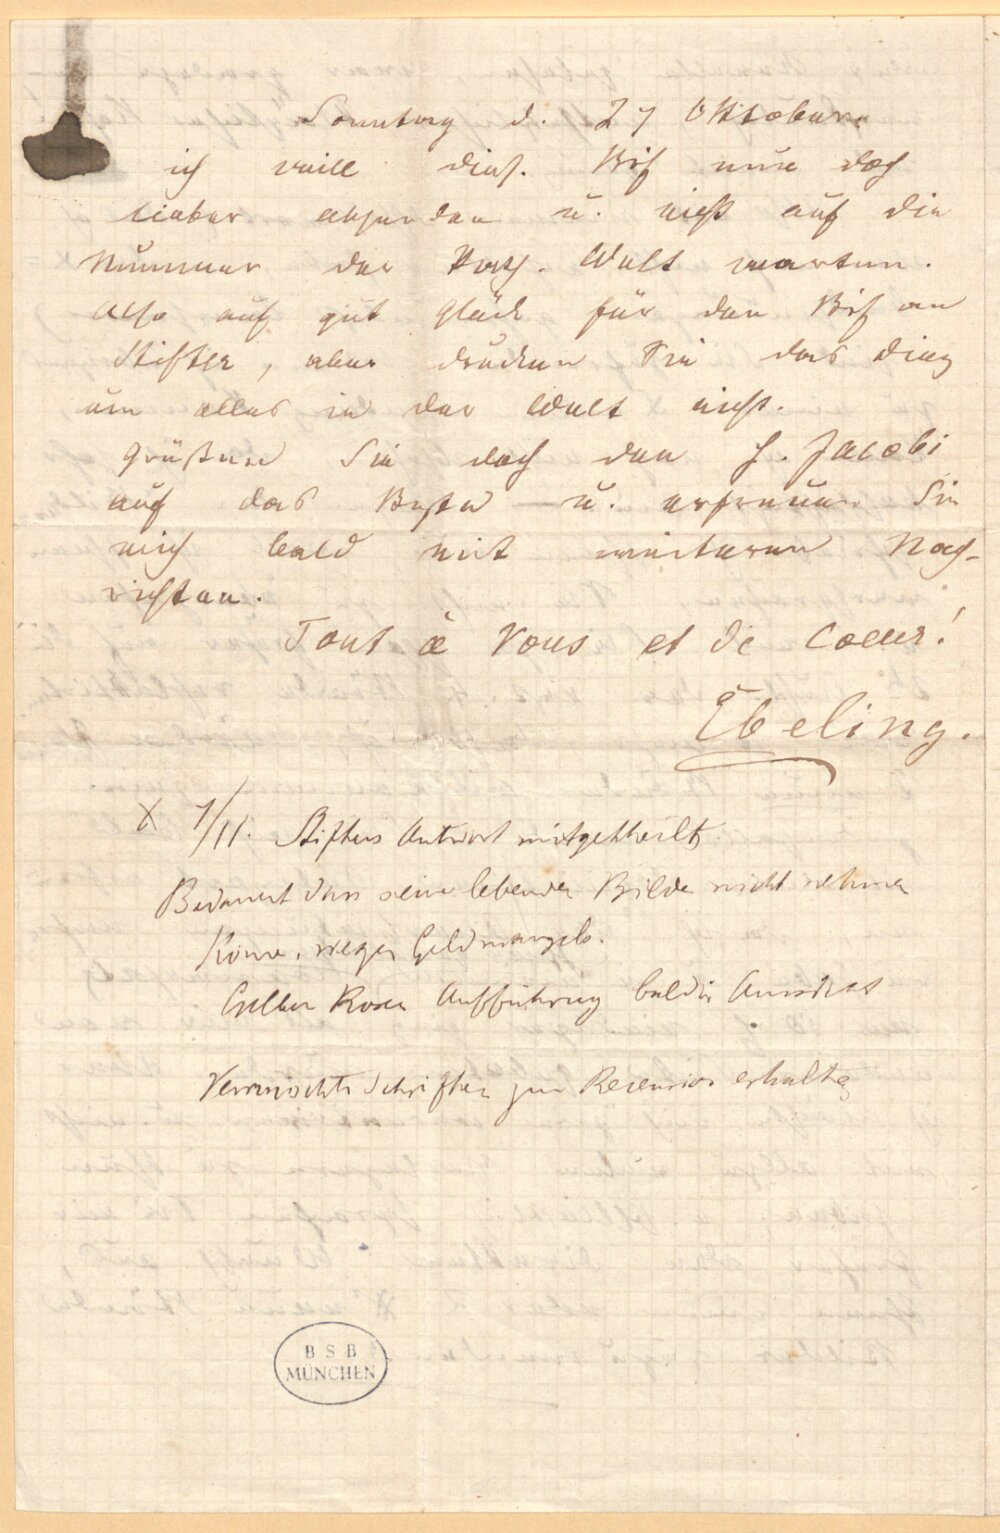 Sonntag d. 27 Oktober.
ich will dies. Brf nun doch
lieber absenden u. nicht auf die
Nummer der Wult warten.
Also auf gut Glück für den Brf an
Stifter, aber drucken Sie das Ding
um alles in der Welt nicht.
Grüßen Sie doch den H. Jacobi
auf das Beste u. erfreuen Sie
mich bald mit weiteren Nach-
richten.
Tout à Vous et de Coeur!
Ebeling.
X 7/11. Stifters Antwort mitgetheilt.
Bedauert dass seine lebenden Bilder nicht nehmen
könne, wegen Geldmangels.
Gelben Rosen Aufführung baldige Aussicht
Vermischte Schriften zur Recension erhalten
B S B
MÜNCHEN